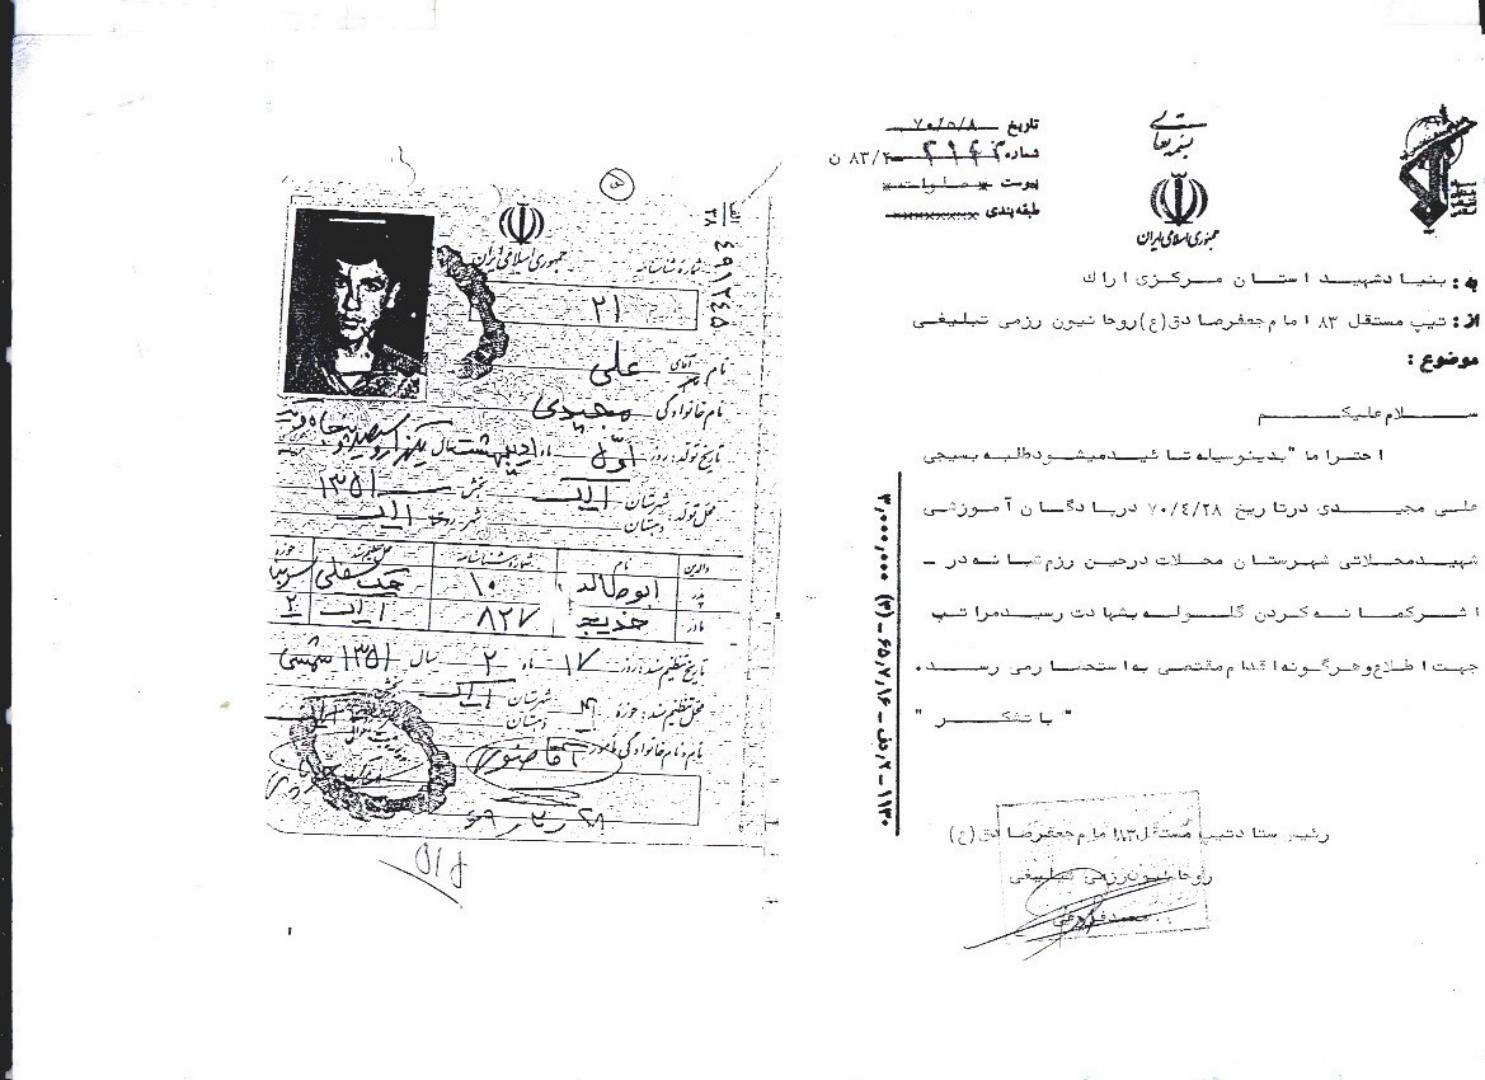 بسمه تعالی
جمهوری اسلامی ایران
تاریخ ۷۰/۵/۸
شماره ۸۳/ ن
پیوست صلوات
طبقه‌بندی ××××××××××
به: بنیاد شهید استان مرکزی اراك
از: تیپ مستقل ۸۳ امام جعفر صادق (ع) روحانیون رزمی تبلیغی
موضوع:
سلام علیکم
احتراما " بدینوسیله تائید میشود طلبه بسیجی
علی مجیدی در تاریخ ۷۰/٤/۲۸ در پادگان آموزشی
شهید محلاتی شهرستان محلات در حین رزم شبانه در -
اثر کمانه کردن گلوله بشهادت رسید مراتب
جهت اطلاع و هرگونه اقدام مقتضی به استحضار می رسد.
" با تشکر "
رئیس ستاد تیپ مستقل ۸۳ امام جعفر صادق (ع)
روحانیون رزمی تبلیغی
۳,۰۰۰,۰۰۰ (۳) – ۶۵,۷,۱۶ – ف
جمهوری اسلامی ایران
الف ۳۸ ٤۹۱۲٤۵
شماره شناسنامه
۲۱
نام آقای علی
نام خانوادگی مجیدی
تاریخ تولد: روز اول ماه اردیبهشت سال یکهزار و سیصد و پنجاه و یک
۱۳۵۱
محل تولد: شهرستان اراک بخش
دهستان شهر اراک
والدین نام شماره شناسنامه محل تنظیم سند حوزه
پدر ابوطالب ۱۰
مادر خدیجه ۸۲۷ اراک ۲
تاریخ تنظیم سند: روز ۱۷ ماه ۲ سال ۱۳۵۱ شمسی
محل تنظیم سند: حوزه شهرستان اراک بخش
دهستان
نام و نام خانوادگی مأمور